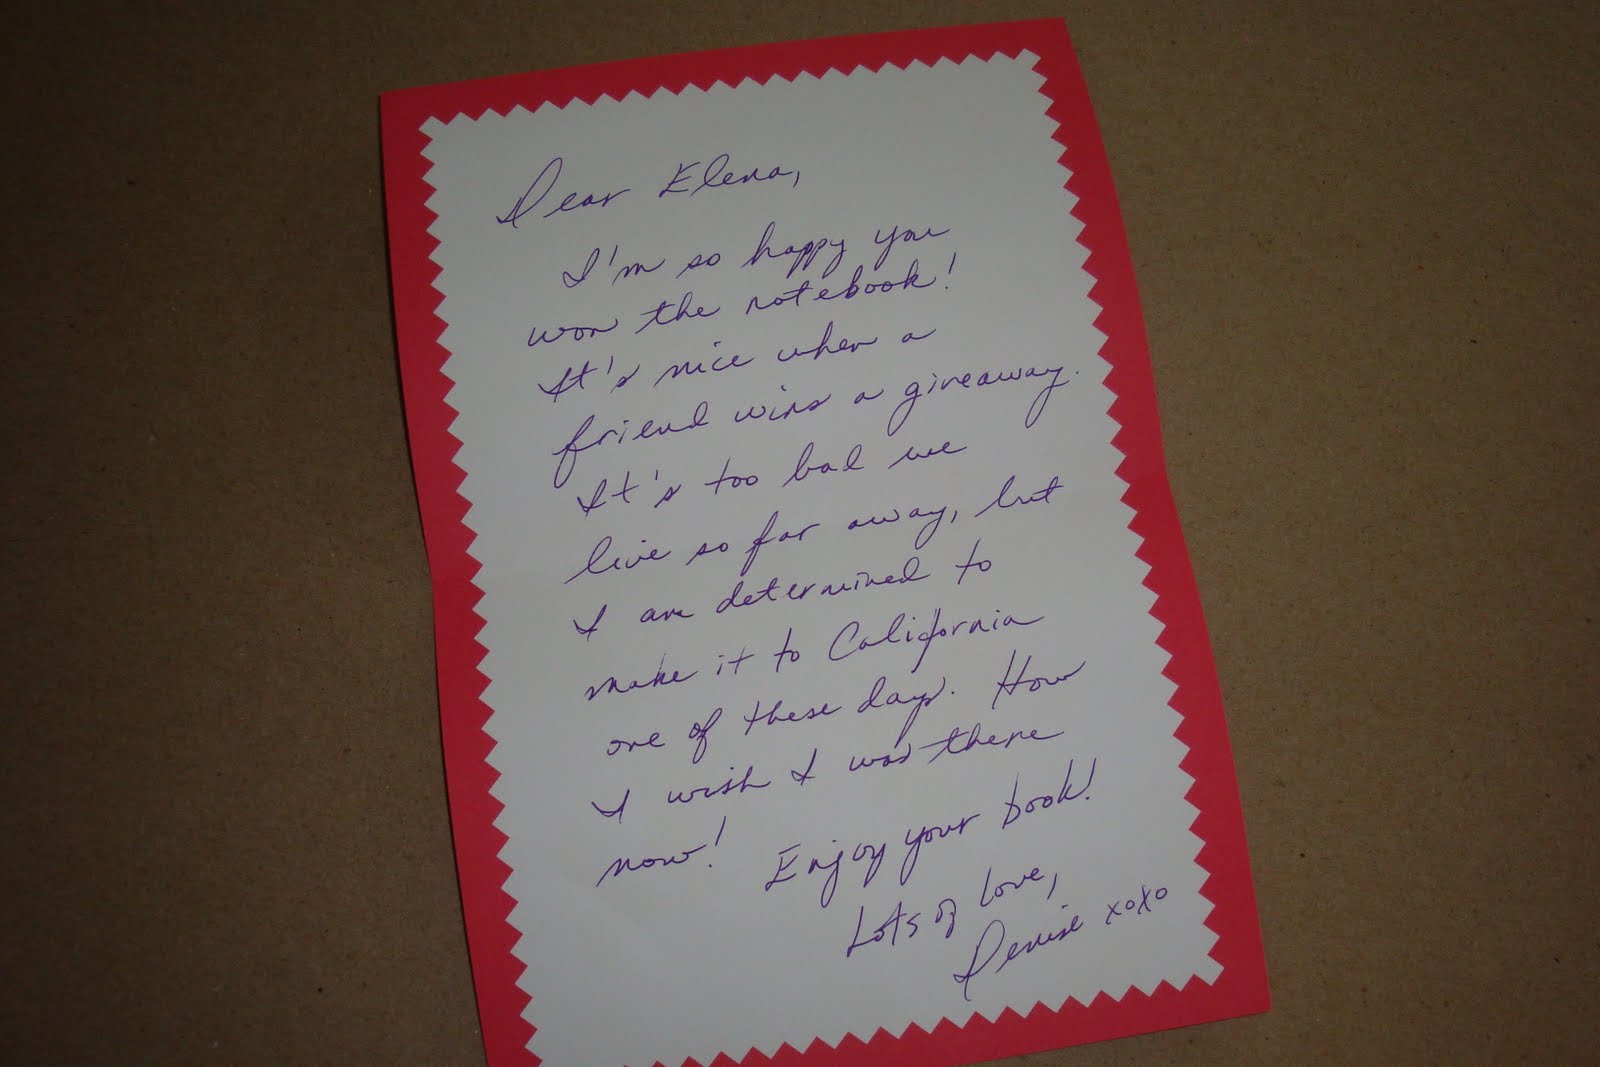 Dear Elena,
I'm so happy you
won the notebook!
It's nice when a
friend wins a giveaway.
It's too bad we
live so far away, but
I am determined to
make it to California
one of these days. How
I wish I was there
now! Enjoy your book!
Lots of love,
Denise xoxo